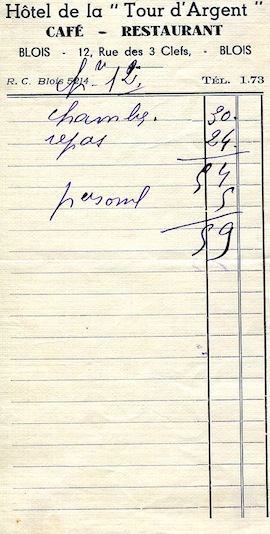 Hôtel de la " Tour d'Argent "
CAFÉ - RESTAURANT
BLOIS - 12, Rue des 3 Clefs, - BLOIS
R. C. Blois 5214 TÉL. 1.73
12
chambre. 30.
repas 24
54
personnel 5
59